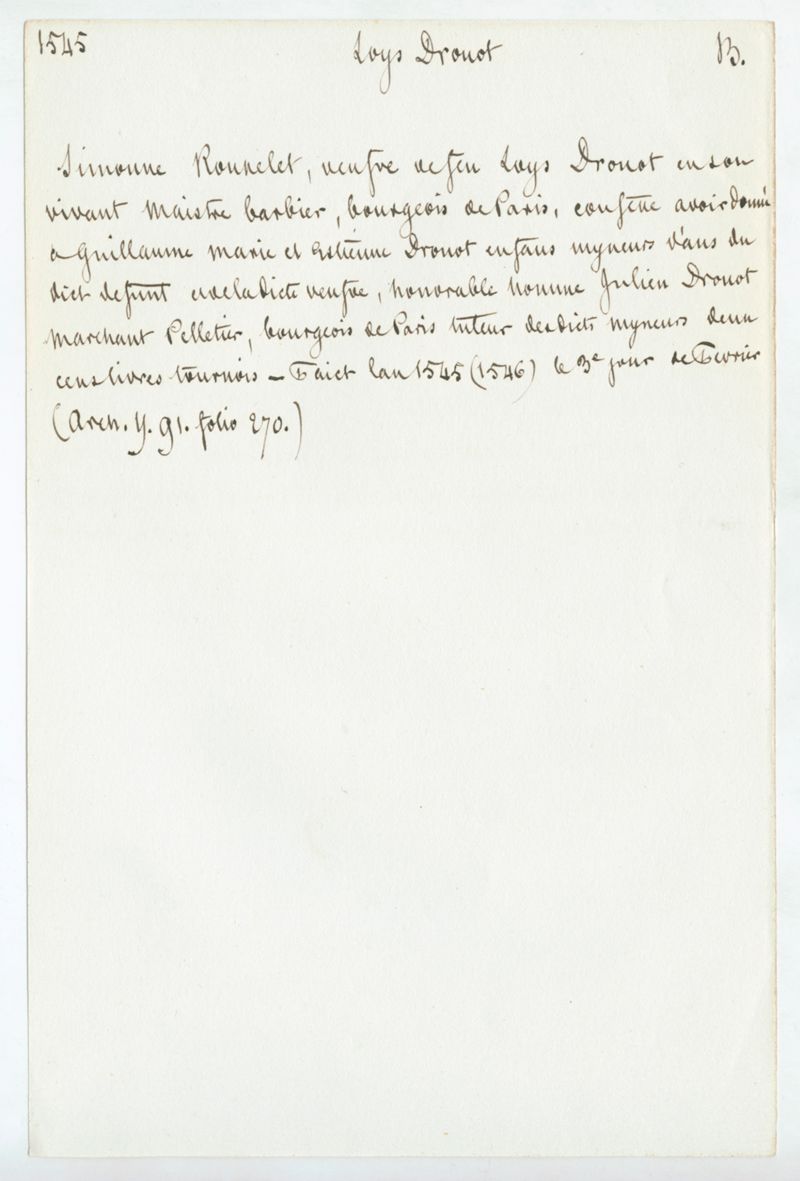 1545 Loys Drouot B.
Simonne Rousselet, veufve de feu Loys Drouot en son
vivant Maistre barbier, bourgeois de Paris, confesse avoir donné
a Guillaume Marie et Estienne Drouot enfans myneurs d'ans du
dict defunt et de la dicte veufve, honorable homme Julien Drouot
Marchant Pelletier, bourgeois de Paris tuteur desdicts myneurs deux
cens livres tournois – Faict lan 1545 (1546) le 3e jour de Fevrier
(Arch. Y. 91. folio 270.)